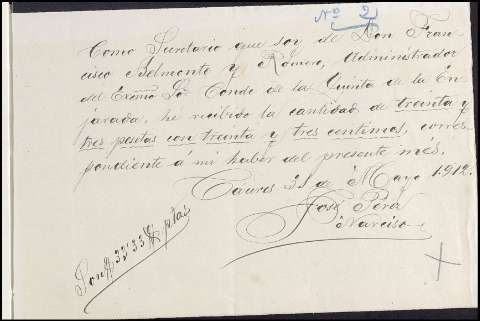 Nº 2
Como Secretario que soy de Don Fran
cisco Belmonte y Romero, Administrador
del Excmo Sor Conde de la Quinta de la En
jarada, he recibido la cantidad de treinta y
tres pesetas con treinta y tres centimos, corres
pondiente á mi haber del presente mes.
Caceres 31 de Mayo 1.912.
José Pérez
Narciso
Son 33'33 ptas